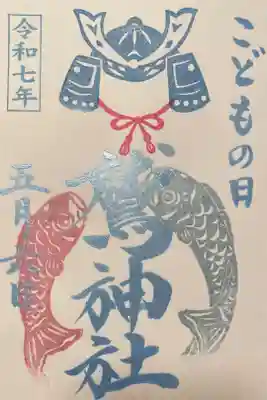 こどもの日
令和七年
神社
五月